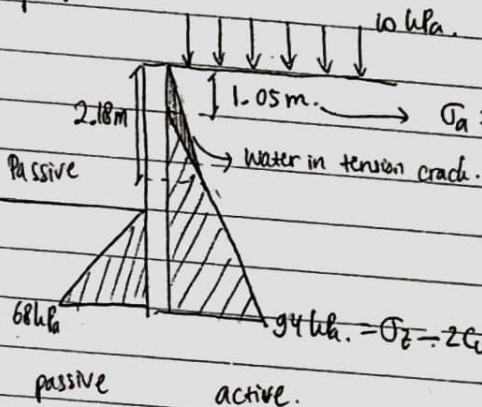 10 kPa.
1.05m.
σa =
2.18m
Water in tension crack.
Passive
68kPa
94 kPa. = σz - 2C
passive
active.